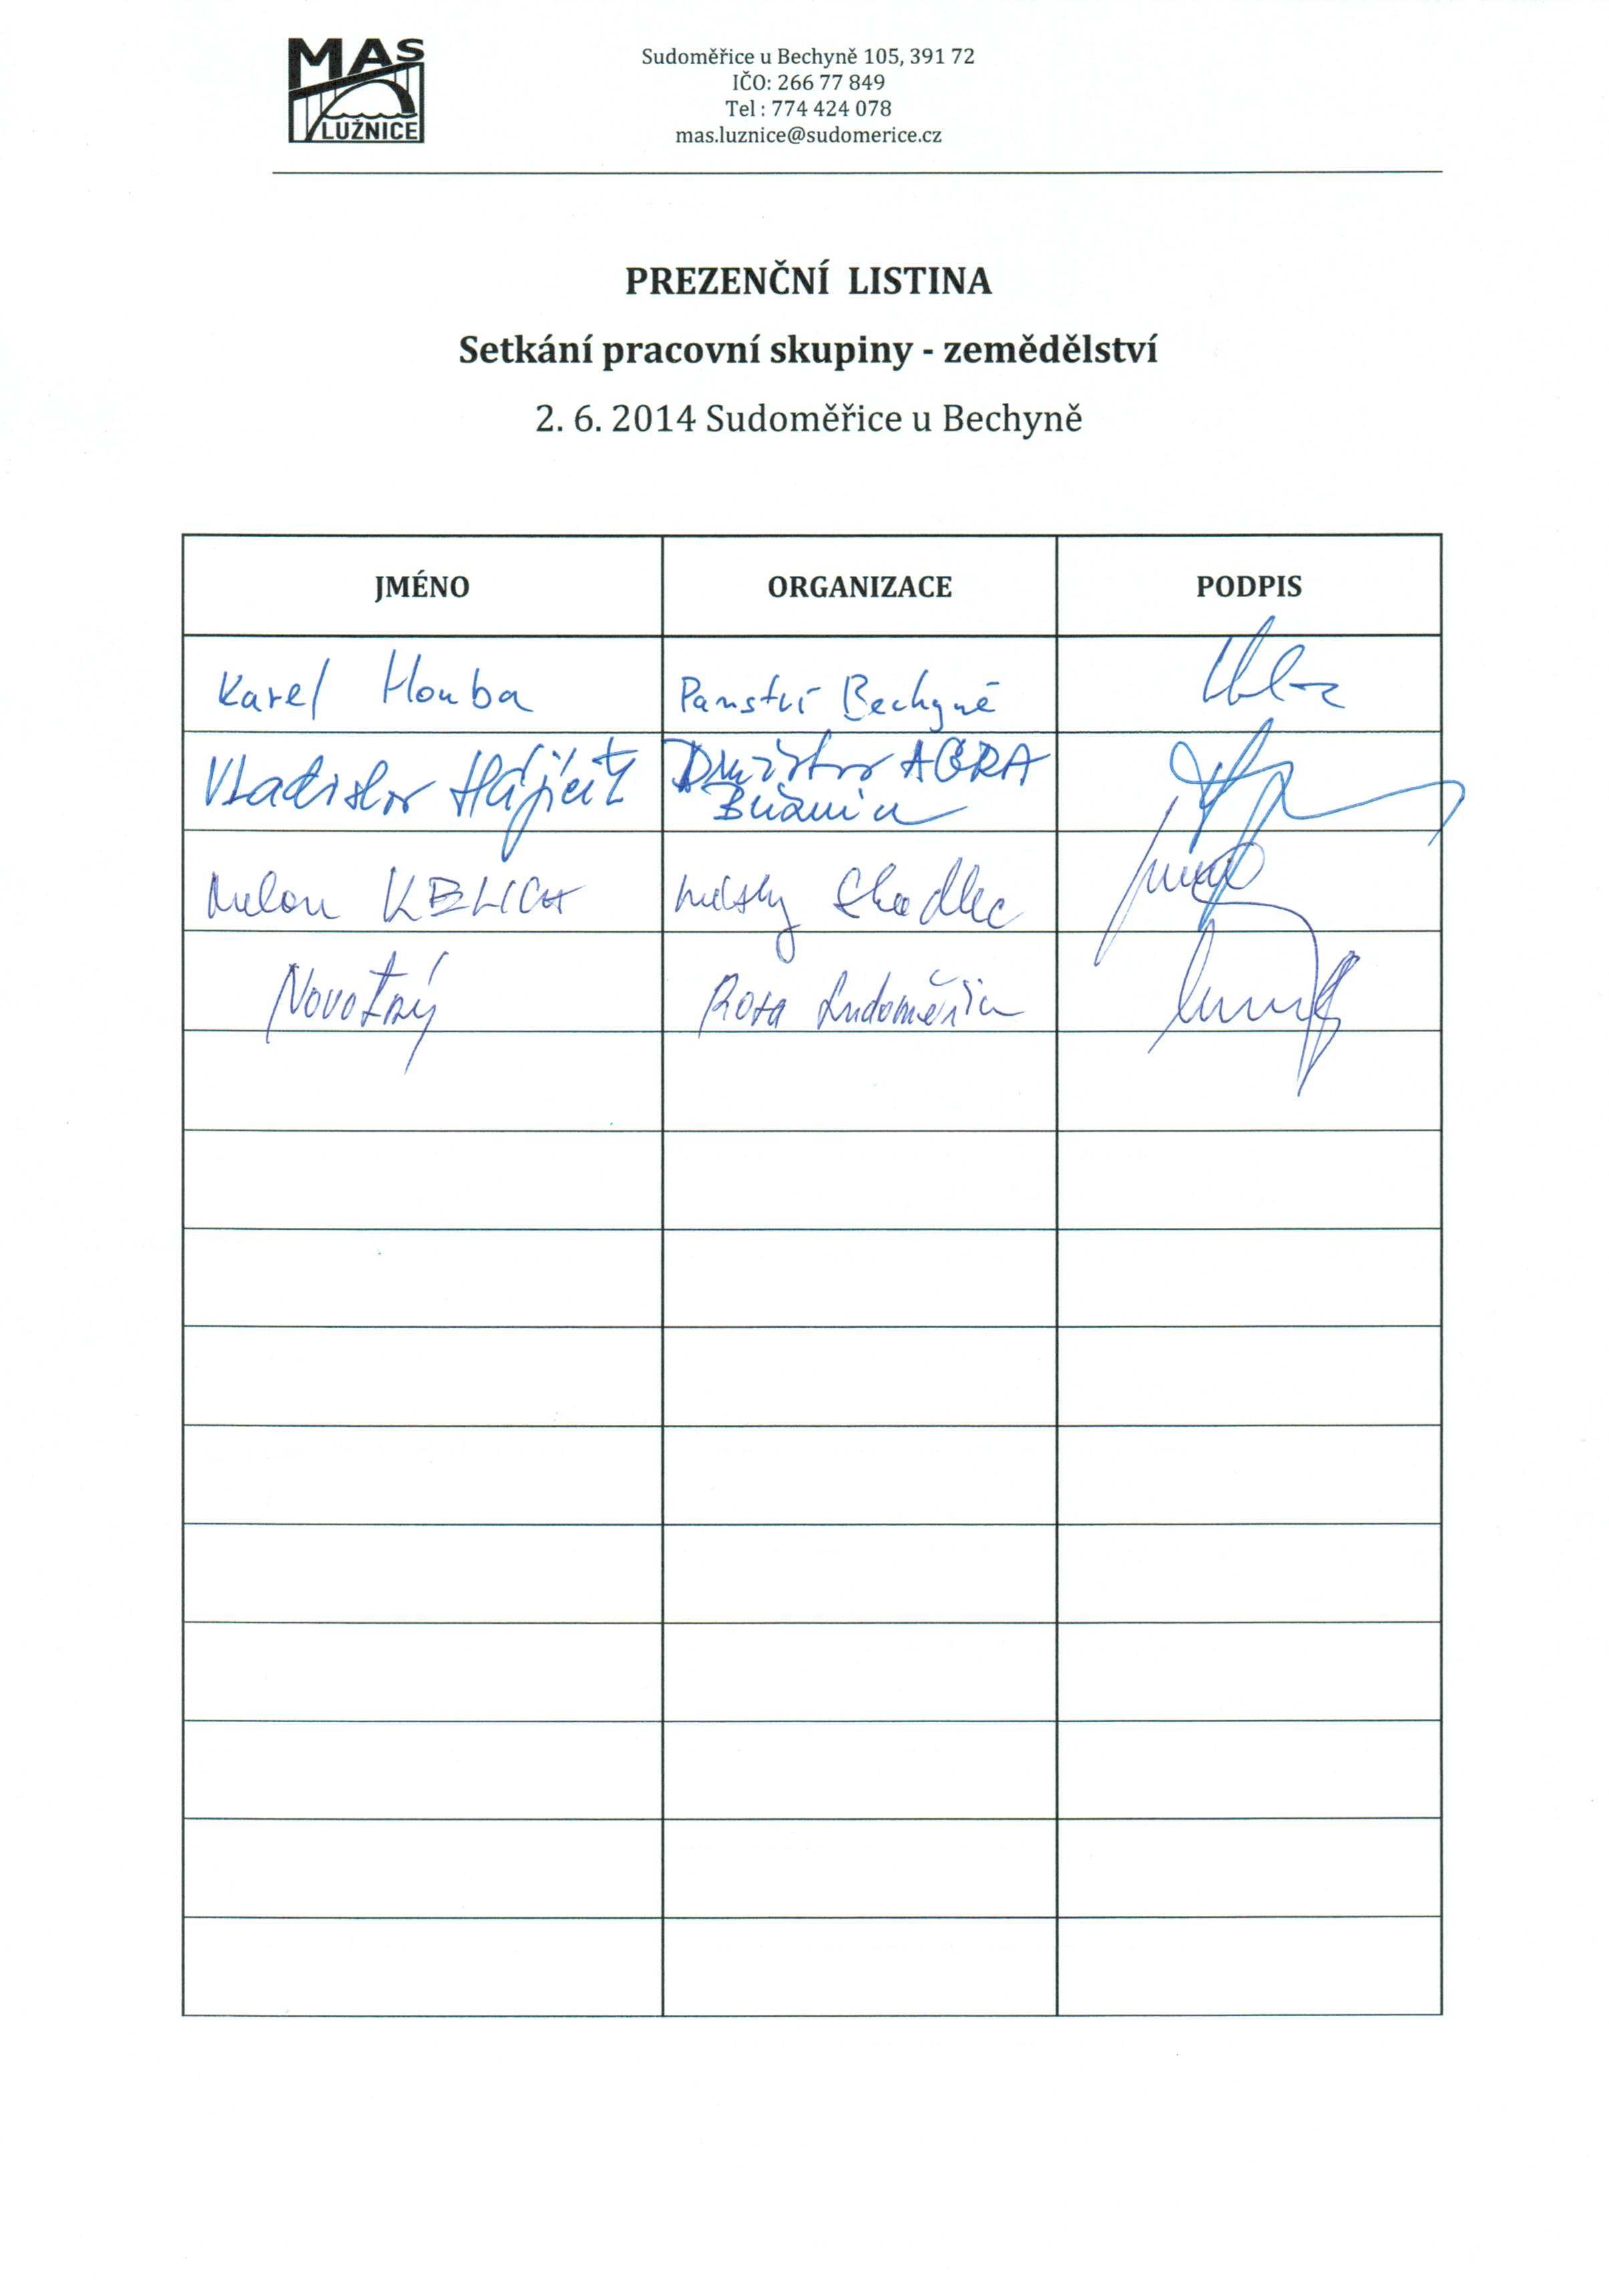 MAS
LUŽNICE
Sudoměřice u Bechyně 105, 391 72
IČO: 266 77 849
Tel : 774 424 078
mas.luznice@sudomerice.cz
PREZENČNÍ LISTINA
Setkání pracovní skupiny - zemědělství
2. 6. 2014 Sudoměřice u Bechyně
JMÉNO ORGANIZACE PODPIS
Karel Houba Panství Bechyně
Vladislav Hájíček Družstvo AGRA
Březnice
Milan KELICH
Novotný Rosa Sudoměřice